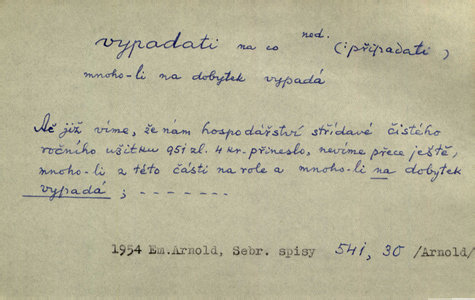 vypadati na co ned. (:připadati)
mnoho-li na dobytek vypadá
Ač již víme, že nám hospodářství střídavé čistého
ročního užitku 951 zl. 4 kr. přineslo, nevíme přece ještě,
mnoho-li z této části na role a mnoho-li na dobytek
vypadá ; - - - - - - -
1954 Em.Arnold, Sebr. spisy 541, 30 /Arnold/